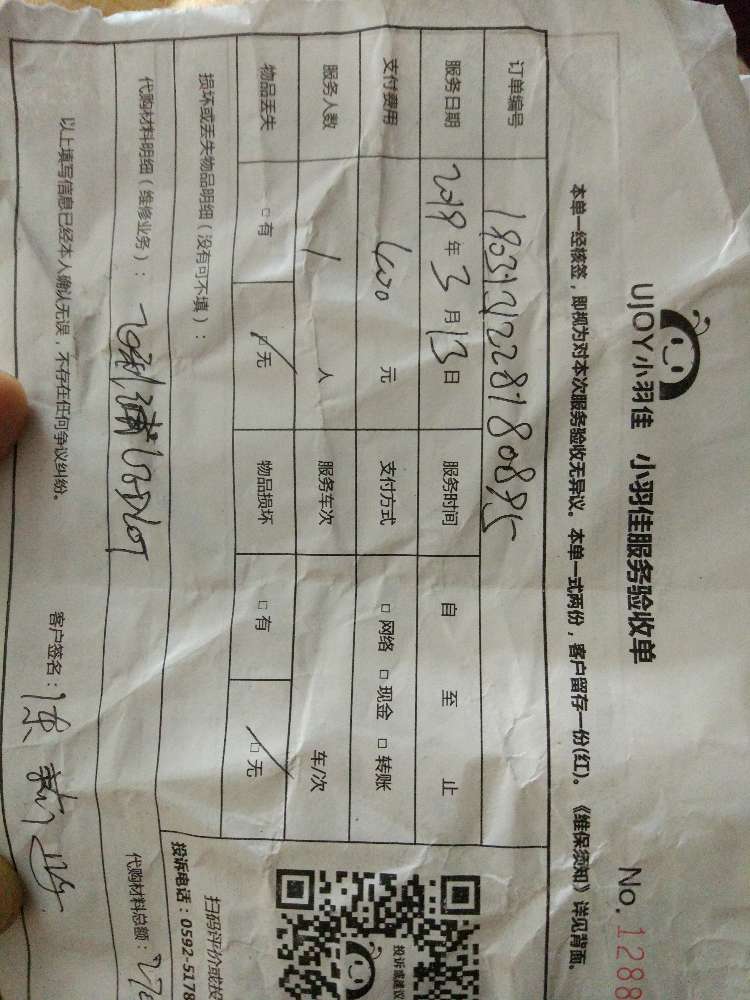 UJOY小羽佳 小羽佳服务验收单
No. 1288
本单一经核签，即视为对本次服务验收无异议。本单一式两份，客户留存一份(红)。《维保须知》详见背面。
订单编号 180313122818 0895
服务日期 2018 年 3 月 13 日 服务时间 自 至 止
支付费用 元 支付方式 □ 网络 □ 现金 □ 转账
服务人数 1 人 服务车次 车/次
物品丢失 □ 有 □ 无 物品损坏 □ 有 □ 无
损坏或丢失物品明细（没有可不填）：
代购材料明细（维修业务）： 代购材料总额：
以上填写信息已经本人确认无误，不存在任何争议纠纷。 客户签名：
投诉或建议
扫码评价或投
投诉电话：0592-5178